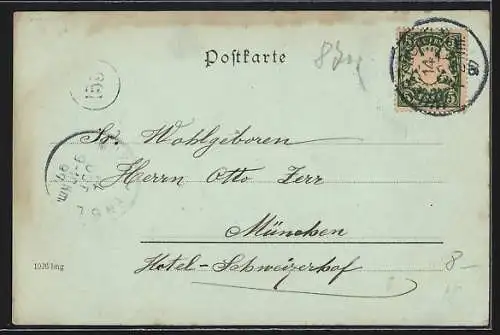 Postkarte
Sr. Wohlgeboren
Herrn Otto Zerr
München
Hotel-Schweizerhof
8-